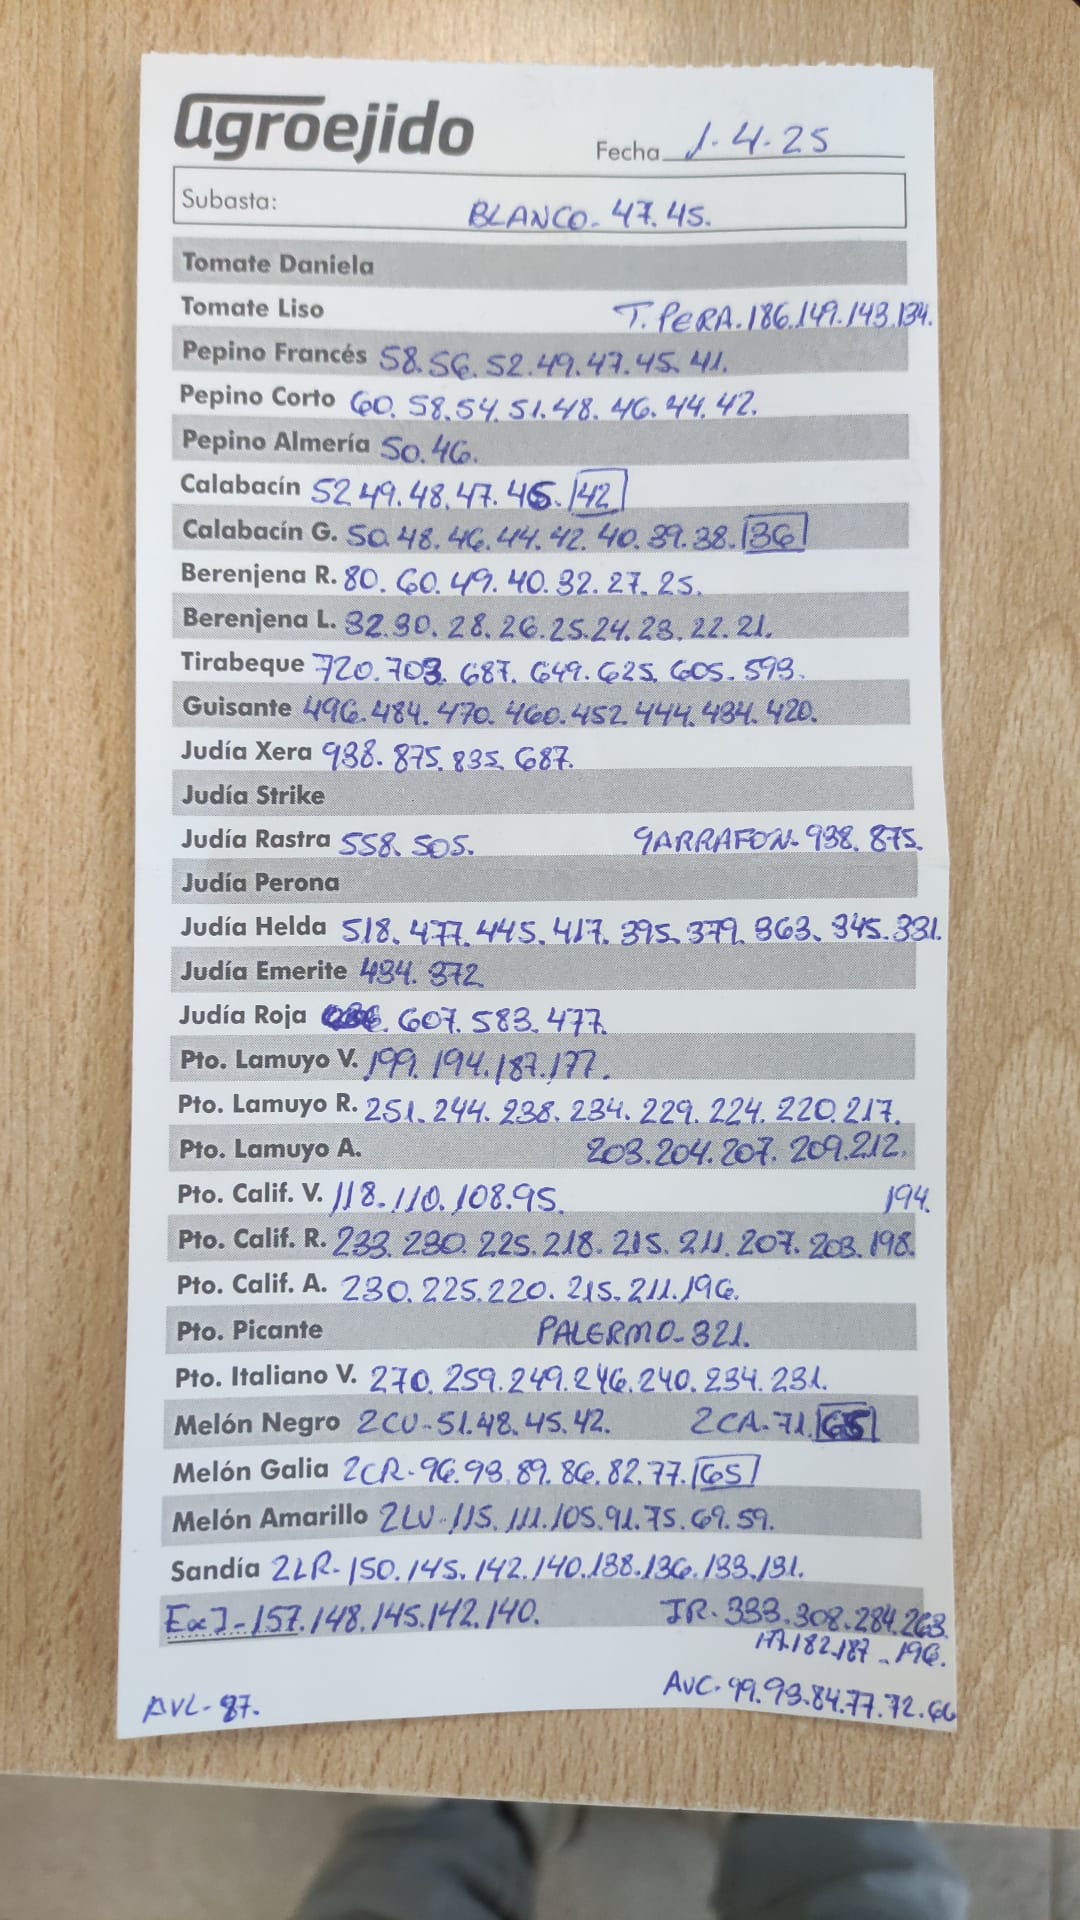 agroejido
Fecha 1.4.25
Subasta: BLANCO-47.45.
Tomate Daniela
Tomate Liso T.PERA.186.149.143.134.
Pepino Francés 58.56.52.49.47.45.41.
Pepino Corto 60.58.54.51.48.46.44.42.
Pepino Almería 50.46.
Calabacín 52 49.48.47.45. 42
Calabacín G. 50.48.46.44.42.40.39.38. 36
Berenjena R. 80.60.49.40.32.27.25.
Berenjena L. 32.30.28.26.25.24.23.22.21.
Tirabeque 720.703.687.649.625.605.593.
Guisante 496.484.470.460.452.444.434.420.
Judía Xera 938.875.835.687.
Judía Strike
Judía Rastra 558.505. GARRAFON-938.875.
Judía Perona
Judía Helda 518.477.445.417.395.379.363.345.331.
Judía Emerite 434.372
Judía Roja 607.583.477.
Pto. Lamuyo V. 199.194.187.177.
Pto. Lamuyo R. 251.244.238.234.229.224.220.217.
Pto. Lamuyo A. 203.204.207.209.212.
Pto. Calif. V. 118.110.108.95. 194.
Pto. Calif. R. 233.230.225.218.215.211.207.203.198.
Pto. Calif. A. 230.225.220.215.211.196.
Pto. Picante PALERMO-321.
Pto. Italiano V. 270.259.249.246.240.234.231.
Melón Negro 2CU-51.48.45.42. 2CA-71. 65
Melón Galia 2CR-96.93.89.86.82.77. 65
Melón Amarillo 2LV-115.111.105.91.75.69.59.
Sandía 2LR-150.145.142.140.138.136.133.131.
157.148.145.142.140. JR-333.308.284.263.
177.182.187-196.
AVL-87. AVC-99.93.84.77.72.66